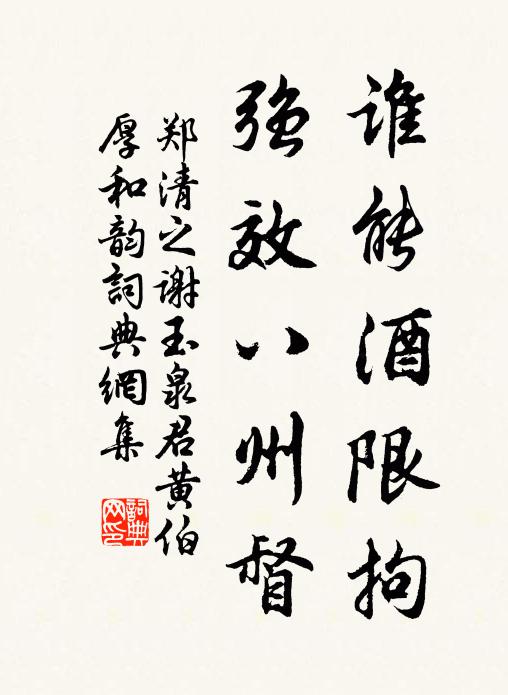 谁能酒限拘
强效八州督
郑清之谢玉泉君黄伯
厚和韵詞典網集
詞典网印